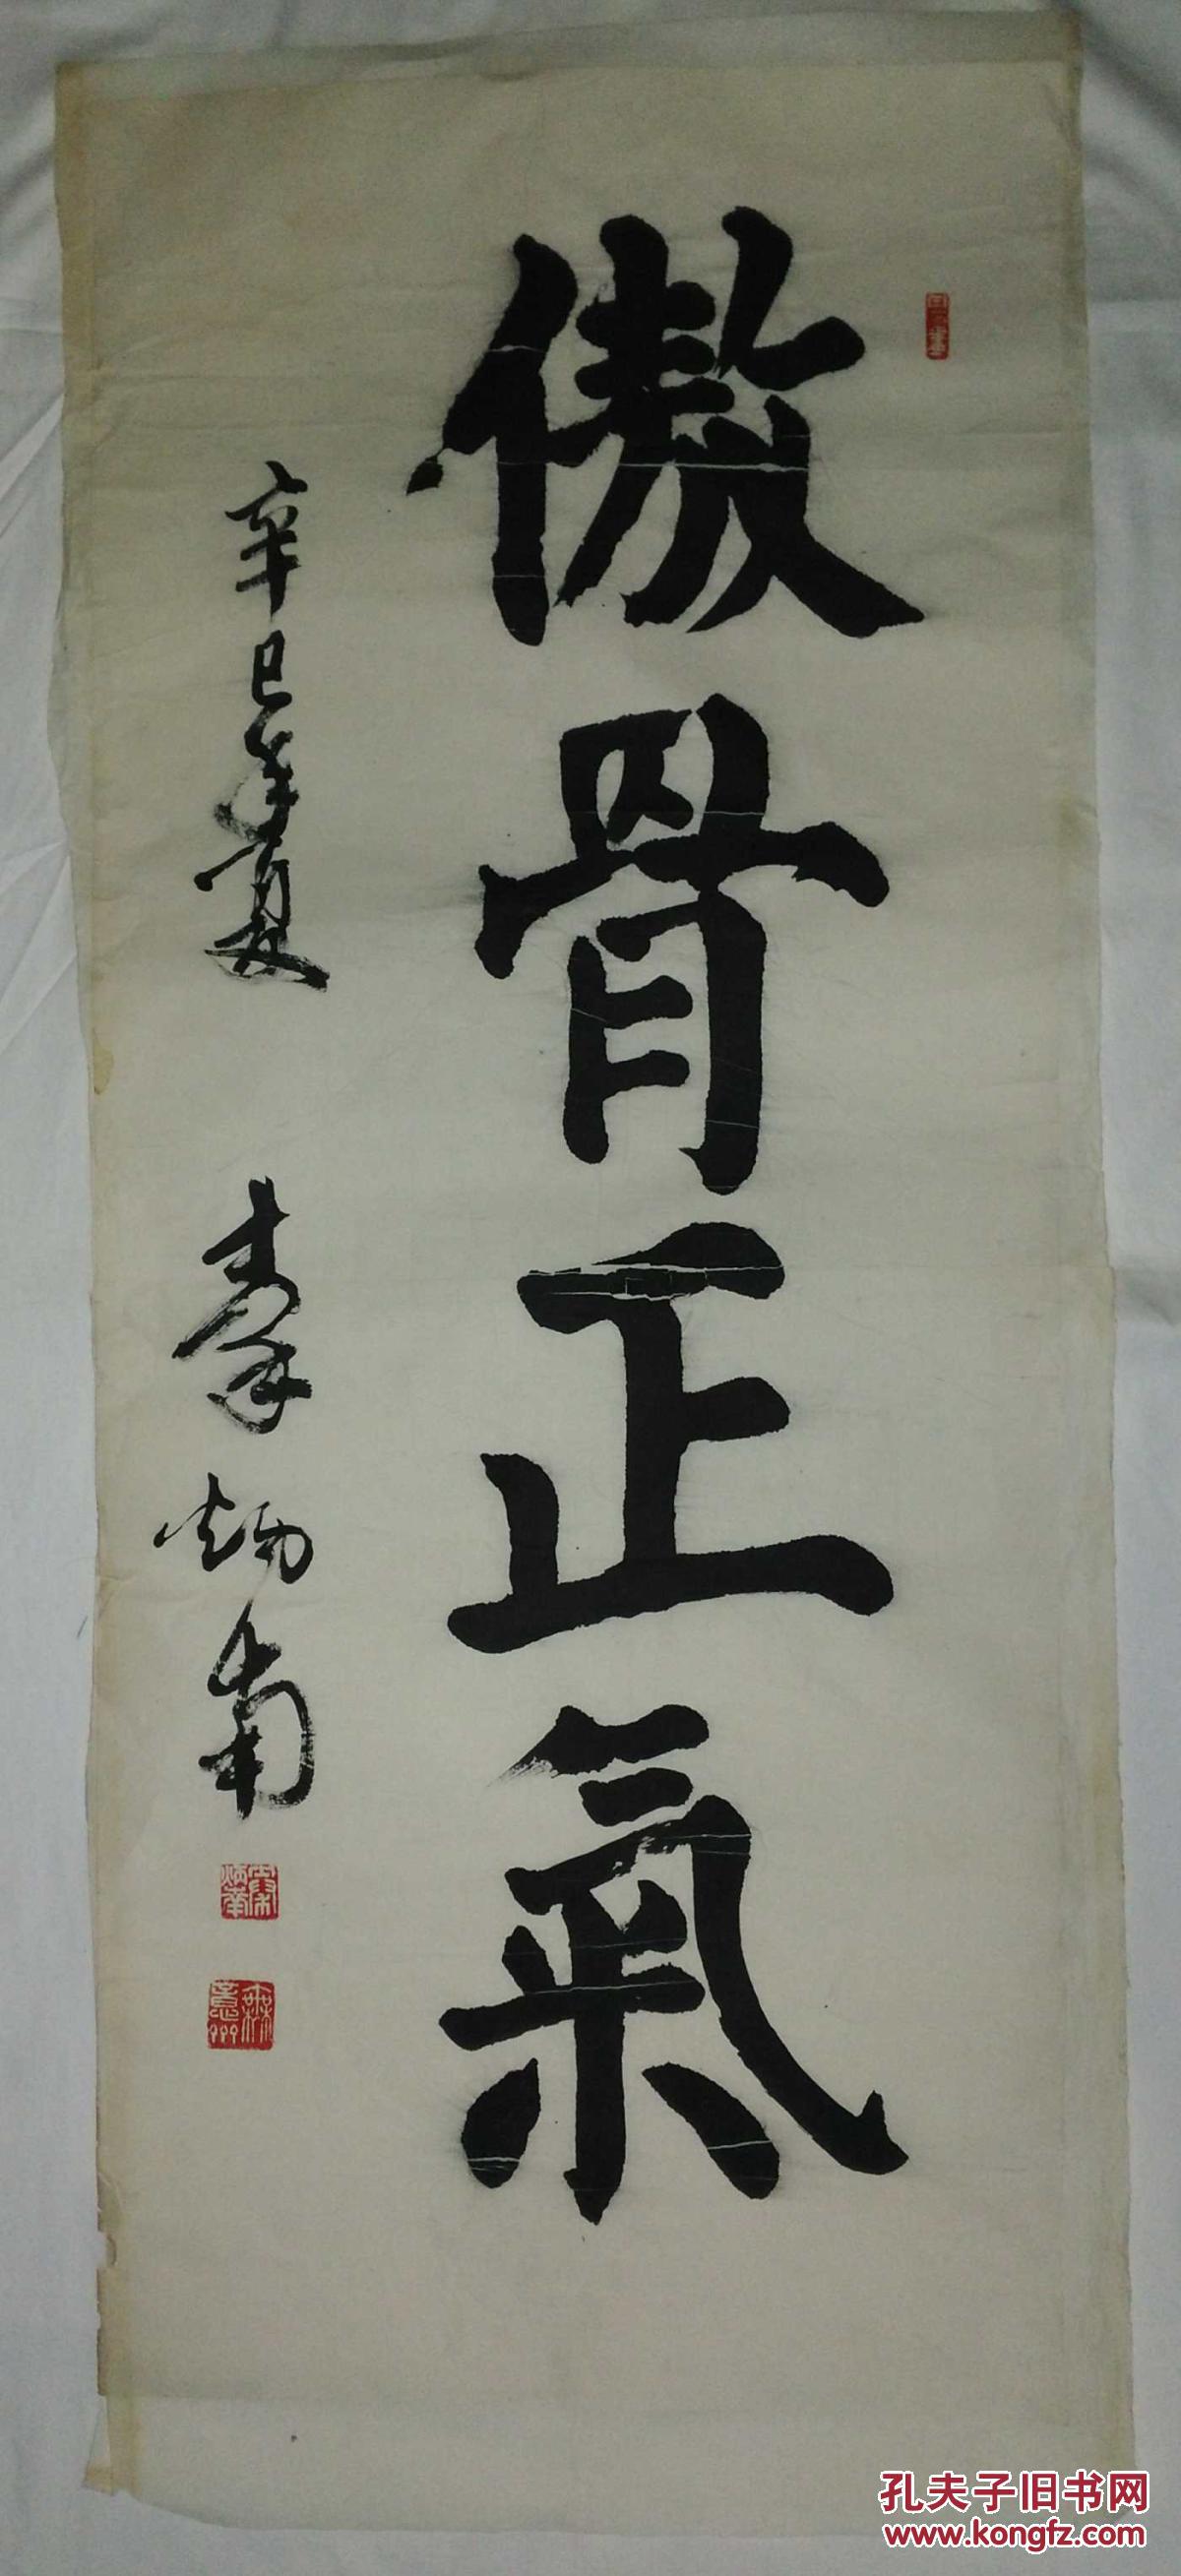 傲骨正氣
辛巳年夏 秦炳南
孔夫子旧书网
www.kongfz.com